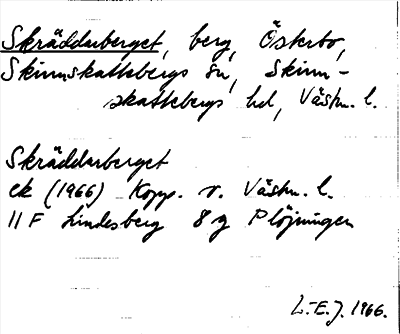 Skräddarberget, berg, Österbo,
Skinnskattebergs sn, Skinn-
skattebergs hd, Västm. l.
Skräddarberget
ek (1966) Kopp. o. Västm. l.
11 F Lindesberg 8 g Plöjningen
L.-E.J. 1966.